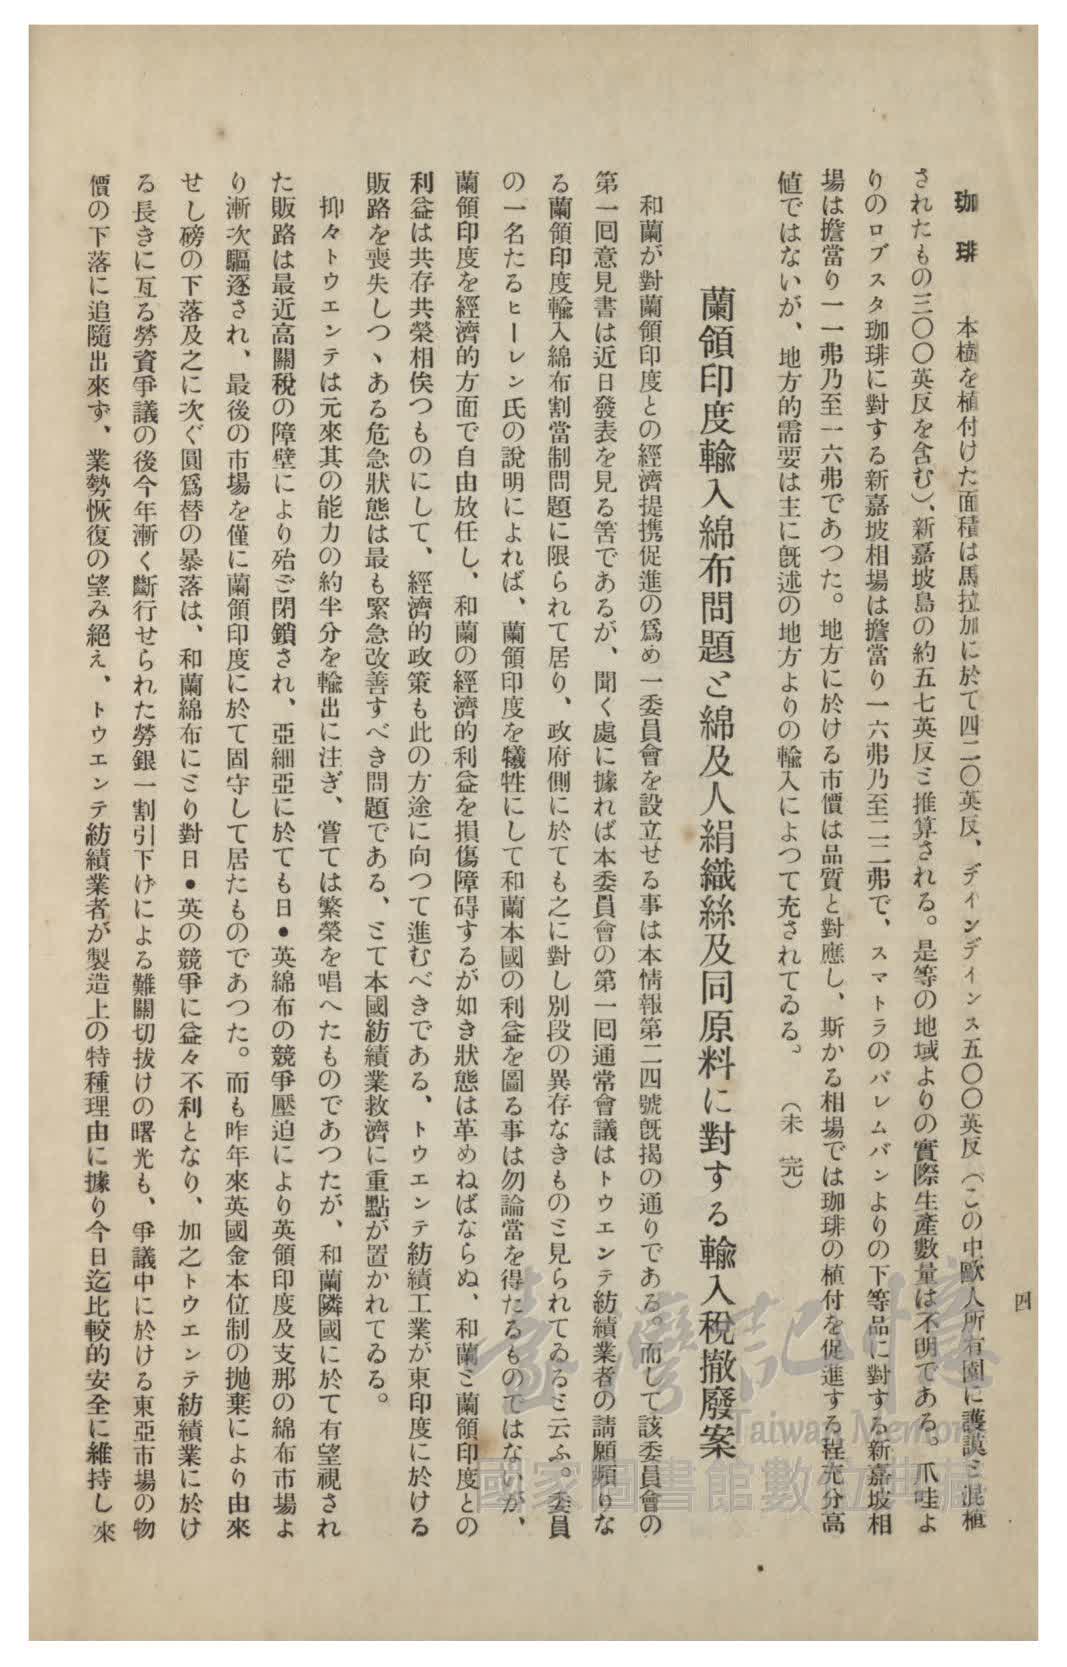 珈琲　本樹を植付けた面積は馬拉加に於て四二〇英反、ディンディンス五〇〇英反（この中歐人所有園に護謨と混植
されたもの三〇〇英反を含む）、新嘉坡島の約五七英反と推算される。是等の地域よりの實際生產數量は不明である。爪哇よ
りのロブスタ珈琲に對する新嘉坡相場は擔當り一六弗乃至二二弗で、スマトラのパレムバンよりの下等品に對する新嘉坡相
場は擔當り一一弗乃至一六弗であつた。地方に於ける市價は品質と對應し、斯かる相場では珈琲の植付を促進する程充分高
値ではないが、地方的需要は主に既述の地方よりの輸入によつて充されてゐる。　（未完）
蘭領印度輸入綿布問題と綿及人絹織絲及同原料に對する輸入稅撤廢案
和蘭が對蘭領印度との經濟提携促進の爲め一委員會を設立せる事は本情報第二四號既揭の通りである。而して該委員會の
第一囘意見書は近日發表を見る筈であるが、聞く處に據れば本委員會の第一囘通常會議はトウエンテ紡績業者の請願頻りな
る蘭領印度輸入綿布割當制問題に限られて居り、政府側に於ても之に對し別段の異存なきものと見られてゐると云ふ。委員
の一名たるヒーレン氏の說明によれば、蘭領印度を犧牲にして和蘭本國の利益を圖る事は勿論當を得たるものではないが、
蘭領印度を經濟的方面で自由放任し、和蘭の經濟的利益を損傷障碍するが如き狀態は革めねばならぬ、和蘭と蘭領印度との
利益は共存共榮相俟つものにして、經濟的政策も此の方途に向つて進むべきである、トウエンテ紡績工業が東印度に於ける
販路を喪失しつゝある危急狀態は最も緊急改善すべき問題である、とて本國紡績業救濟に重點が置かれてゐる。
抑々トウエンテは元來其の能力の約半分を輸出に注ぎ、嘗ては繁榮を唱へたものであつたが、和蘭隣國に於て有望視され
た販路は最近高關稅の障壁により殆ど閉鎖され、亞細亞に於ても日・英綿布の競爭壓迫により英領印度及支那の綿布市場よ
り漸次驅逐され、最後の市場を僅に蘭領印度に於て固守して居たものであつた。而も昨年來英國金本位制の抛棄により由來
せし磅の下落及之に次ぐ圓爲替の暴落は、和蘭綿布にとり對日・英の競爭に益々不利となり、加之トウエンテ紡績業に於け
る長きに亙る勞資爭議の後今年漸く斷行せられた勞銀一割引下げによる難關切拔けの曙光も、爭議中に於ける東亞市場の物
價の下落に追隨出來ず、業勢恢復の望み絕え、トウエンテ紡績業者が製造上の特種理由に據り今日迄比較的安全に維持し來
四
臺灣記憶
Taiwan Memory
國家圖書館數位典藏